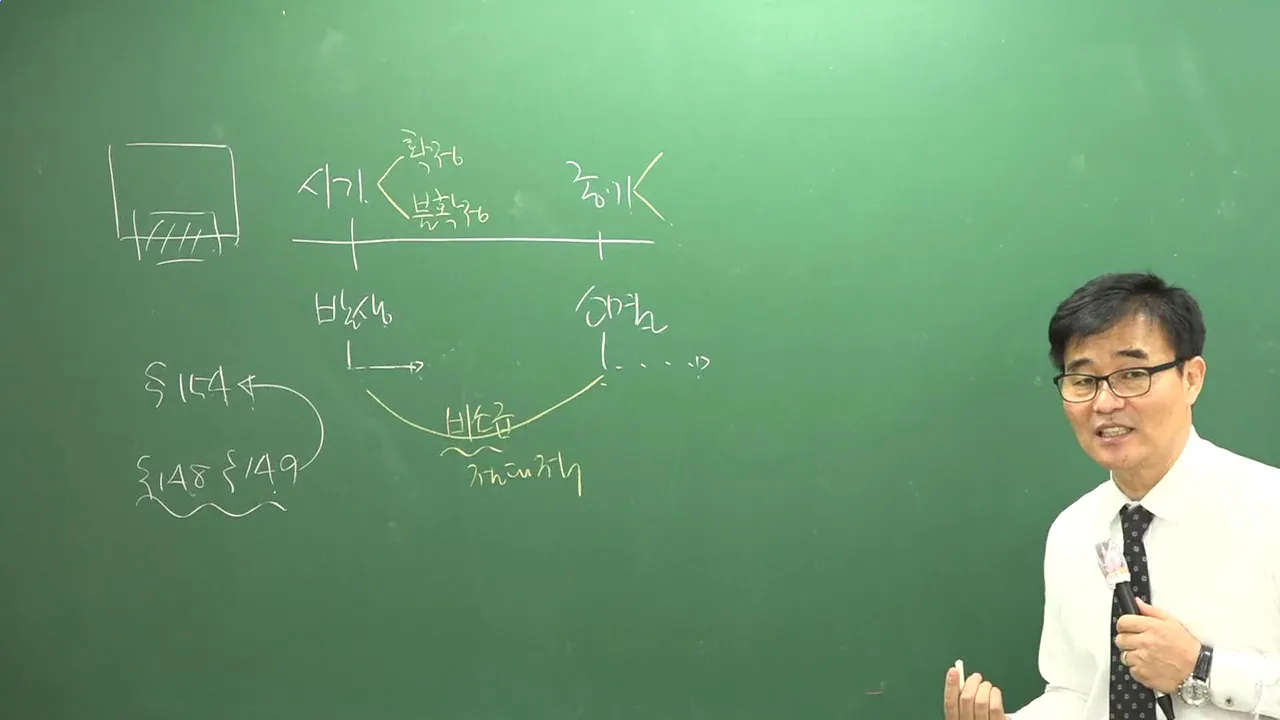 확정
시기
불확정
종기
발생
소멸
§154
비소급
§148 §149